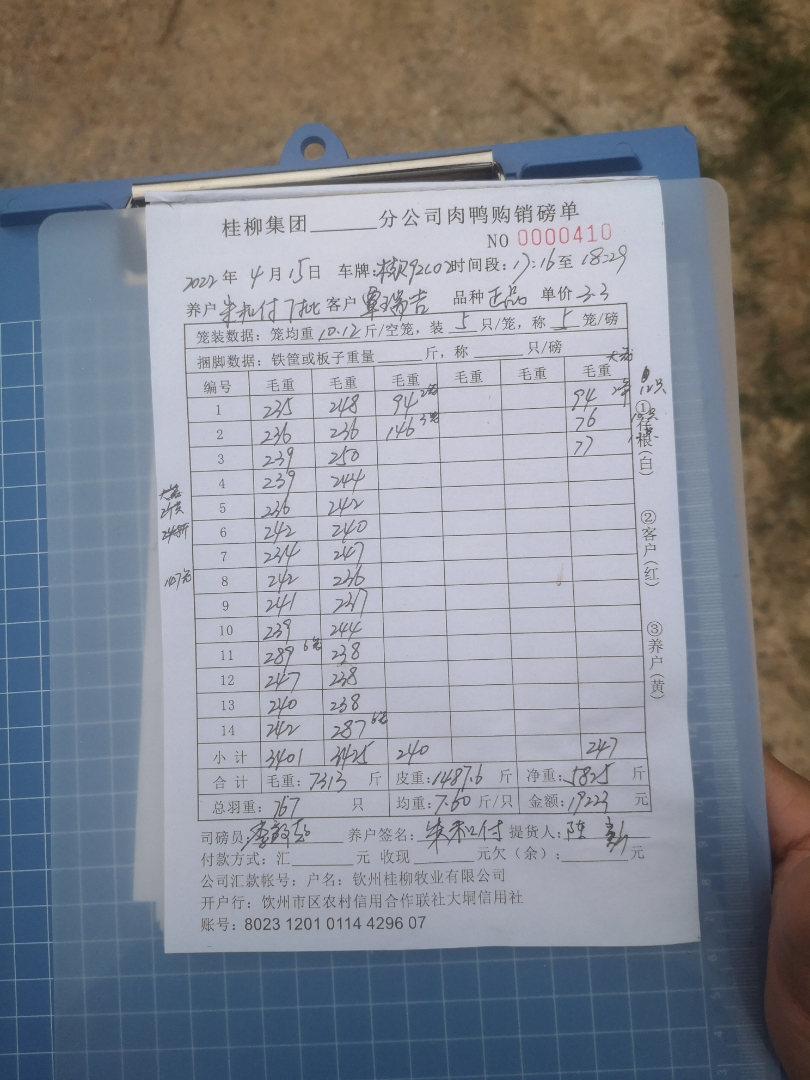 桂柳集团______分公司肉鸭购销磅单
NO 0000410
2022年 4月15日 车牌: 92C02 时间段: 17:16至 18:29
养户 朱扣付 7批 客户 覃瑞吉 品种 正品 单价 3.3
笼装数据: 笼均重 10.12 斤/空笼, 装 5 只/笼, 称 5 笼/磅
捆脚数据: 铁筐或板子重量 ______ 斤, 称 ______ 只/磅
编号 毛重 毛重 毛重 毛重 毛重 毛重
1 235 248 94 94
2 236 236 146 76
3 239 250 77
4 239 244
5 236 242
6 242 240
7 234 247
8 242 236
9 241 237
10 239 244
11 289 238
12 247 238
13 240 238
14 242 287
小计 3401 3425 240 247
合计 毛重: 7313 斤 皮重: 1487.6 斤 净重: 5825 斤
总羽重: 767 只 均重: 7.60 斤/只 金额: 19223 元
司磅员: 养户签名: 朱扣付 提货人: 陈
付款方式: 汇______元 收现______元欠(余): ______元
公司汇款帐号: 户名: 钦州桂柳牧业有限公司
开户行: 钦州市区农村信用合作联社大垌信用社
账号: 8023 1201 0114 4296 07
①存根(白)
②客户(红)
③养户(黄)